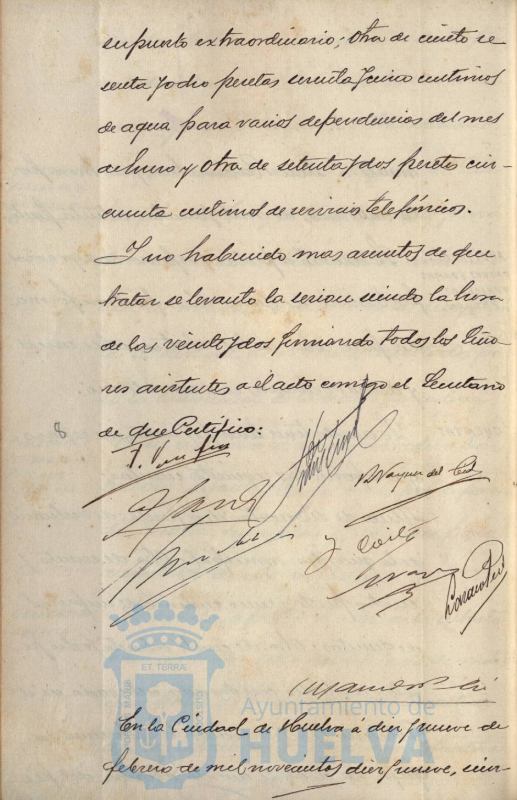 supuesto extraordinario; otra de ciento se
senta y ocho pesetas setenta y cinco centimos
de agua para varios dependencias del mes
de Enero y otra de setenta y dos pesetas cin-
cuenta centimos de servicios telefónicos.
Y no habiendo mas asuntos de que
tratar se levanto la sesion siendo la hora
de las veinte y dos firmando todos los Seño-
res asistentes a el acto conmigo el Secretario
8 de que Certifico:
B Vazquez del Cid
y
ET. TERRAE
Ayuntamiento de
HUELVA
En la Ciudad de Huelva á diez y nueve de
febrero de mil novecientos diez y nueve, sien-